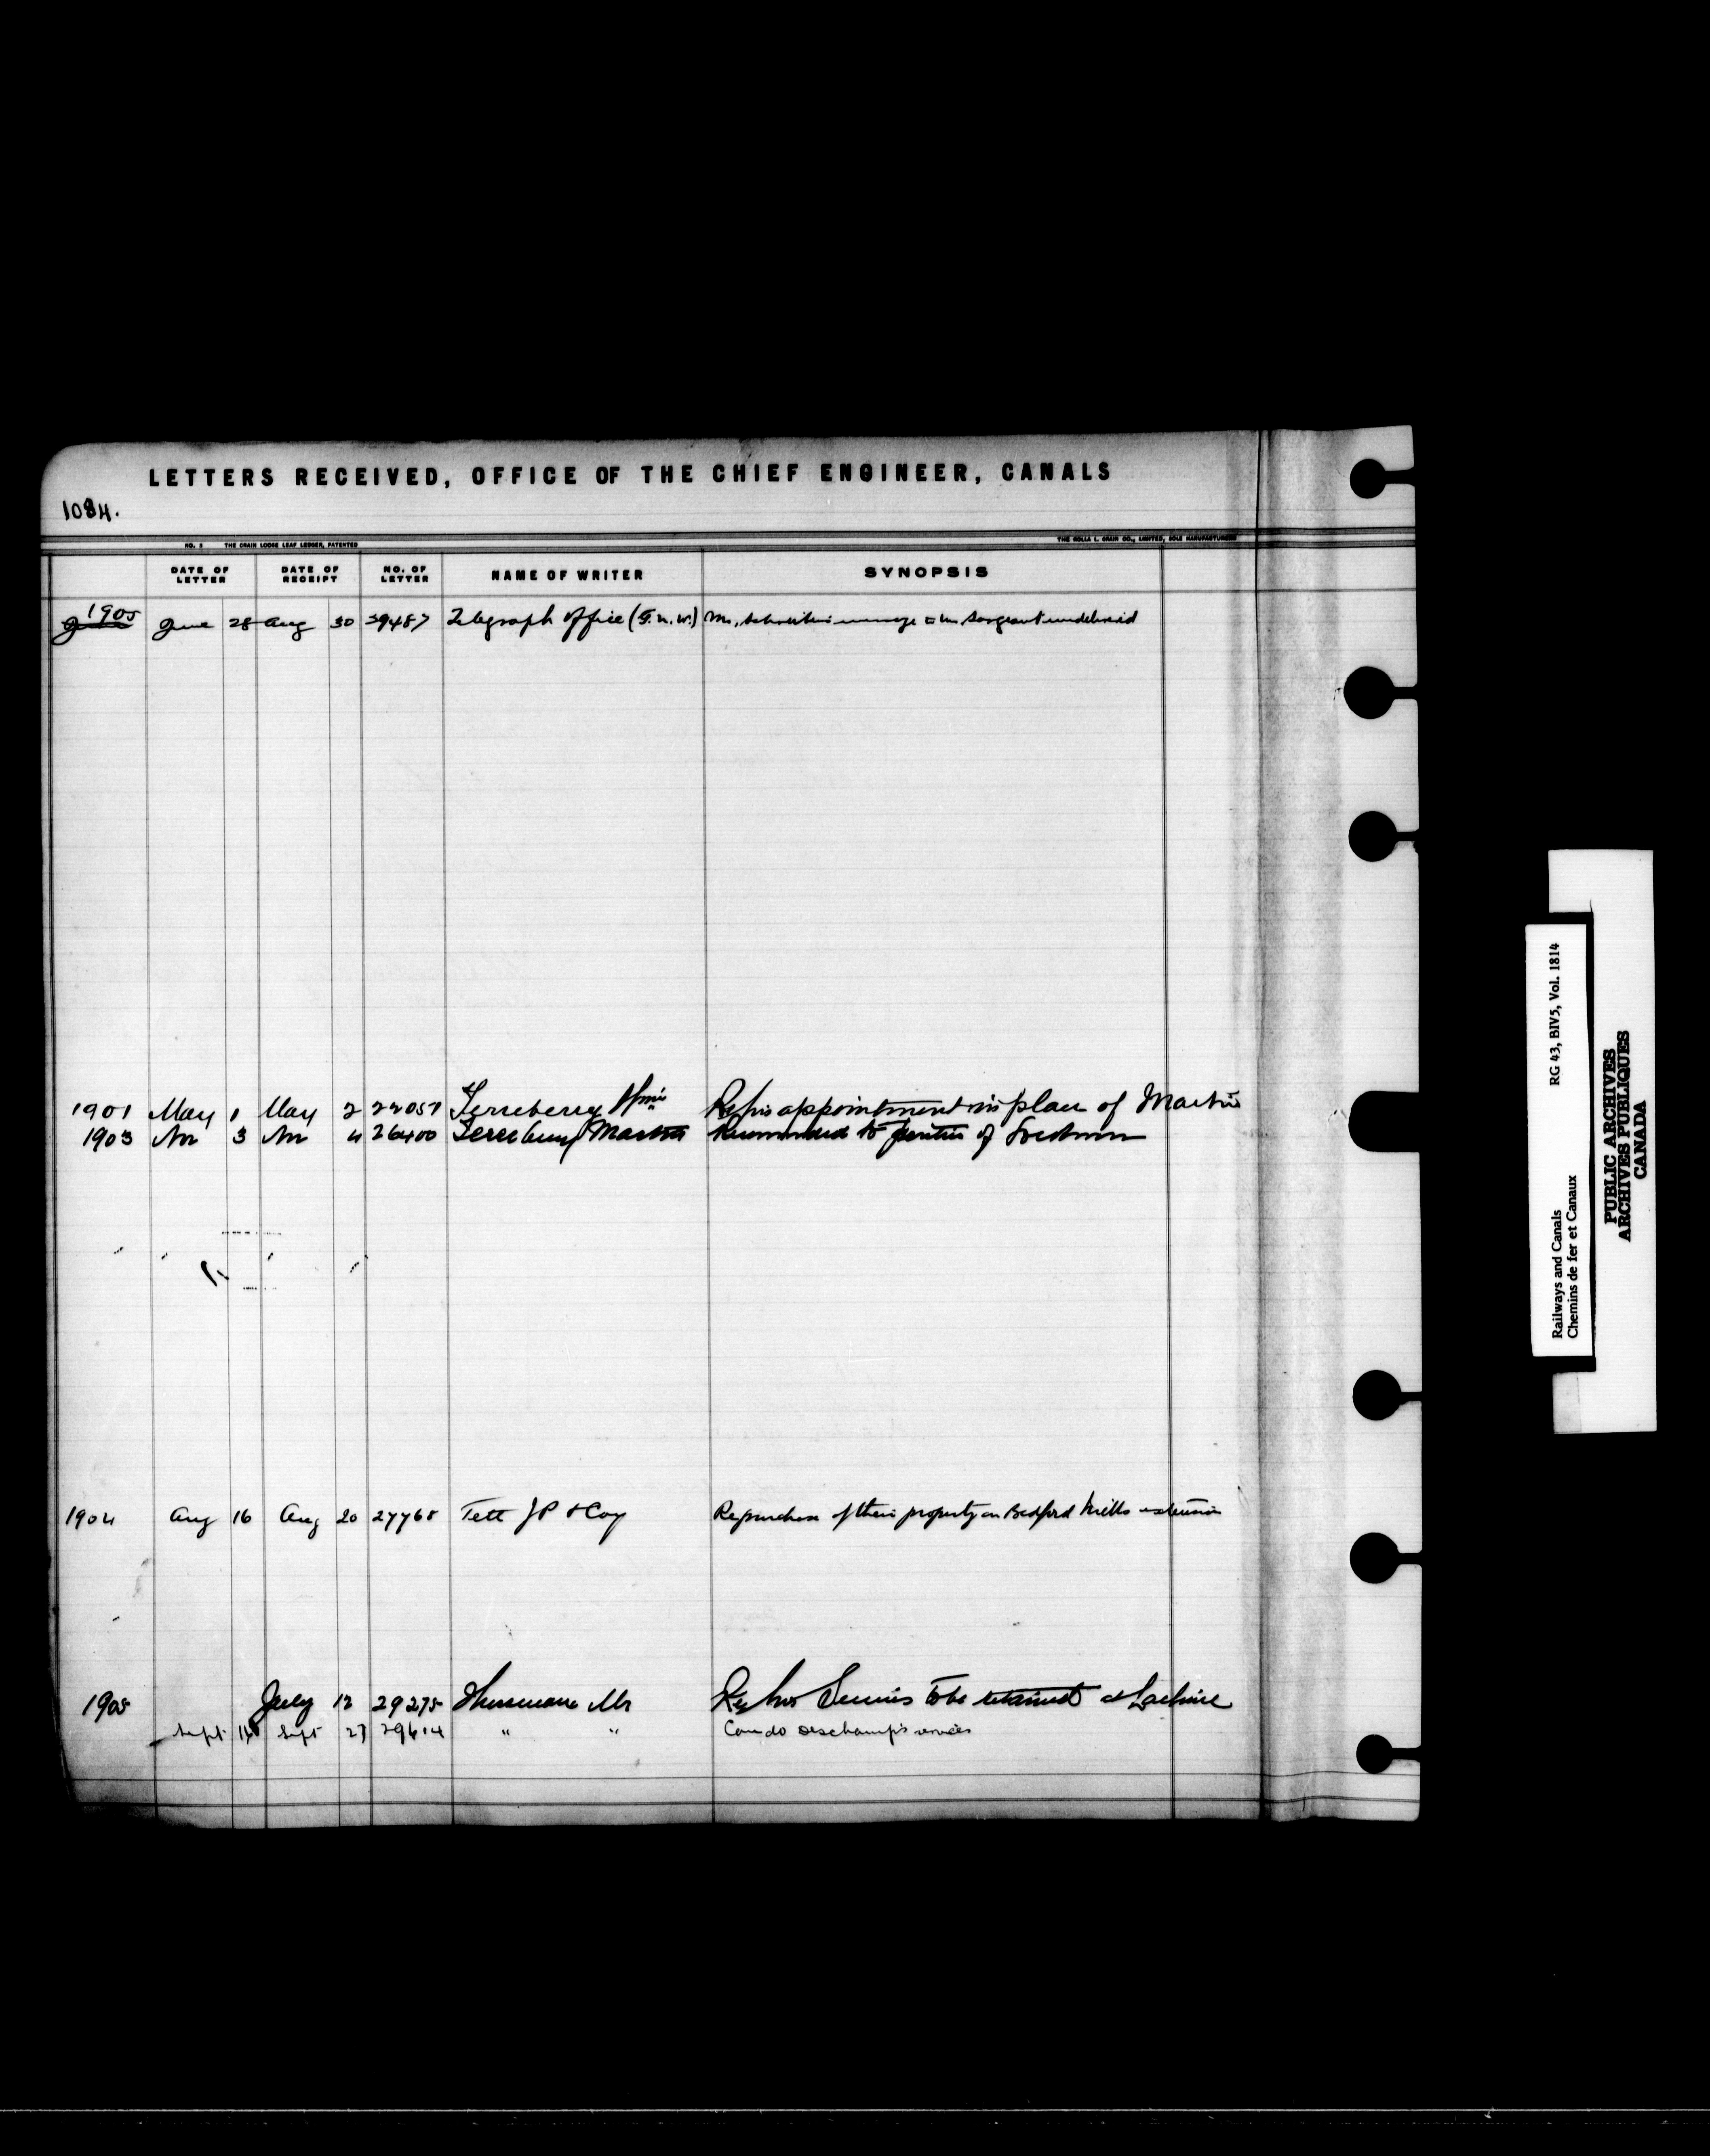 LETTERS RECEIVED, OFFICE OF THE CHIEF ENGINEER, CANALS
1084.
NO. 5 THE CRAIN LOOSE LEAF LEDGER, PATENTED THE ROLLA L. CRAIN CO., LIMITED, SOLE MANUFACTURERS
DATE OF LETTER DATE OF RECEIPT NO. OF LETTER NAME OF WRITER SYNOPSIS
1905 June 28 Aug 30 29487 Telegraph Office (G.N.W.) message Sargeant undelivered
1901 May 1 May 2 22057 Terreberry Re his appointment in place of Martin
1903 Nov 3 Nov 4 26400 Terreberry Martin Recommended to position of
1904 Aug 16 Aug 20 27768 Tett JP & Coy Re purchase of their property on Bedford Mills extension
1905 July 12 29275 Mr Re his Services to be retained at Lachine
Sept Sept 27 29614 " " Can do Deschamp's services
RG 43, BIV5, Vol. 1814
Railways and Canals
Chemins de fer et Canaux
PUBLIC ARCHIVES
ARCHIVES PUBLIQUES
CANADA